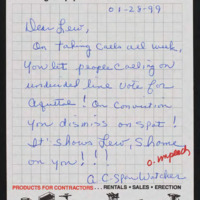 01-28-99
Dear Lew,
On taking calls all week,
You let people calling on
undecided line vote for
! On Conviction
You dismiss on spot!
It Shows Lew, Shame
on you!!!
o. impeach
a C. Span Watcher
PRODUCTS FOR CONTRACTORS... RENTALS • SALES • ERECTION